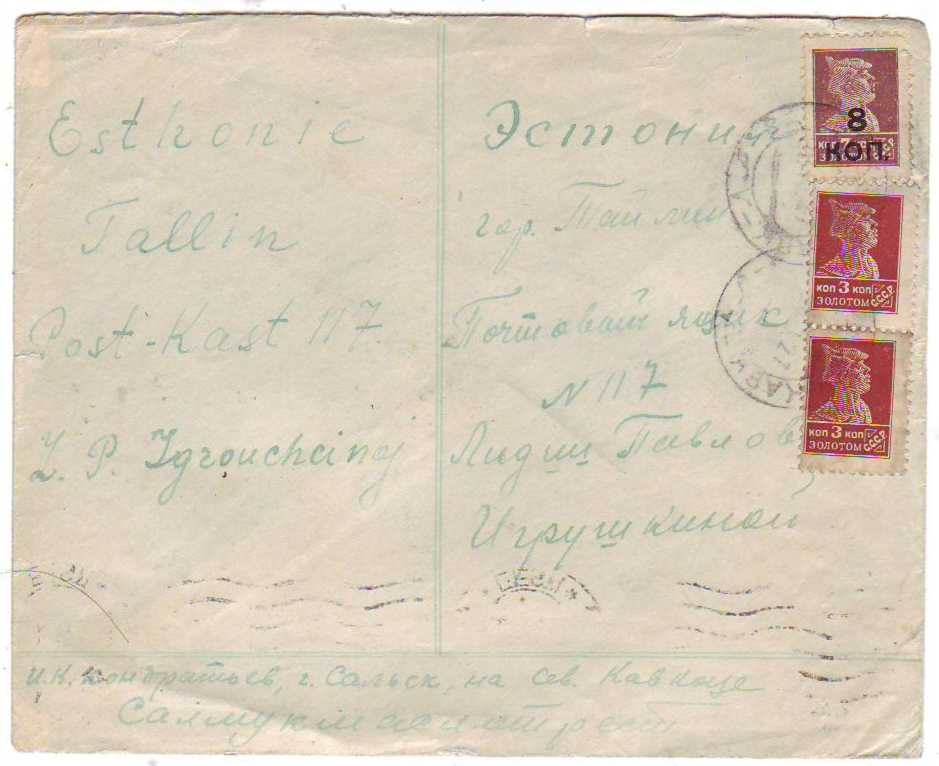 Esthonie
Tallin
Post-Kast 117
L. P. Igrouchcinoj
Эстония
гор. Таллин
Почтовый ящик
N 117
Лидии Павловне
Игрушкиной
И. К. Кондратьев, г. Сальск, на Сев. Кавказе
8
КОП.
ЗОЛОТОМ
КОП 3 КОП
ЗОЛОТОМ
СССР
КОП 3 КОП
ЗОЛОТОМ
СССР